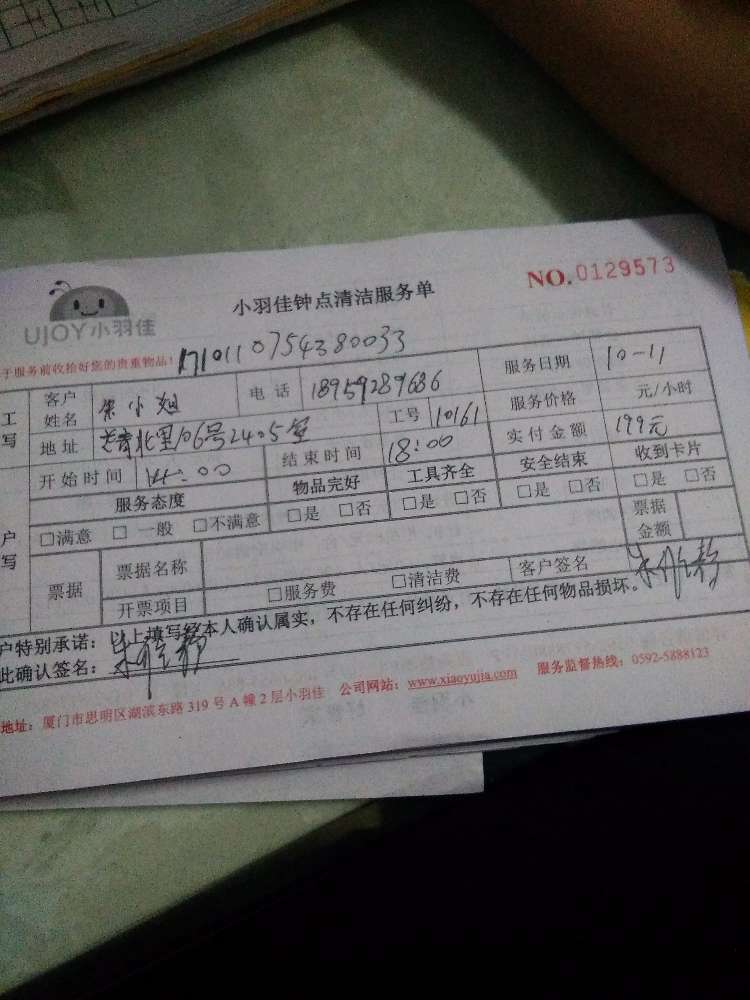 NO.0129573
UJOY小羽佳
小羽佳钟点清洁服务单
于服务前收拾好您的贵重物品！ 1710110754380033
工 客户姓名 小姐 电话 18959289686 服务日期 10-11
写 地址 北里106号2405室 工号 10161 服务价格 元/小时
开始时间 14:00 结束时间 18:00 实付金额 199元
服务态度 物品完好 工具齐全 安全结束 收到卡片
户 □满意 □一般 □不满意 □是 □否 □是 □否 □是 □否 □是 □否
写 票据 票据名称 票据金额
开票项目 □服务费 □清洁费 客户签名
户特别承诺：以上填写经本人确认属实，不存在任何纠纷，不存在任何物品损坏。
此确认签名：
地址：厦门市思明区湖滨东路319号A幢2层小羽佳 公司网站：www.xiaoyujia.com 服务监督热线：0592-5888123